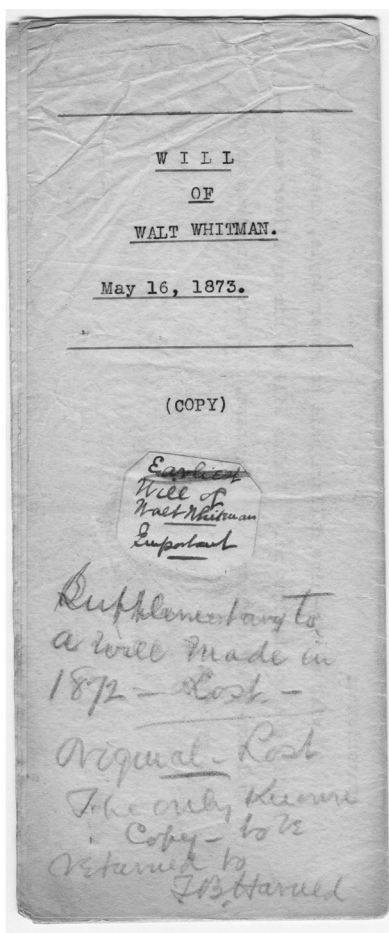 WILL
OF
WALT WHITMAN.
May 16, 1873.
(COPY)
Earliest
Will of
Walt Whitman
Important
Supplementary to
a Will Made in
1872 — Lost. —
Original — Lost
The only Known
Copy — to be
returned to
T.B. Harned